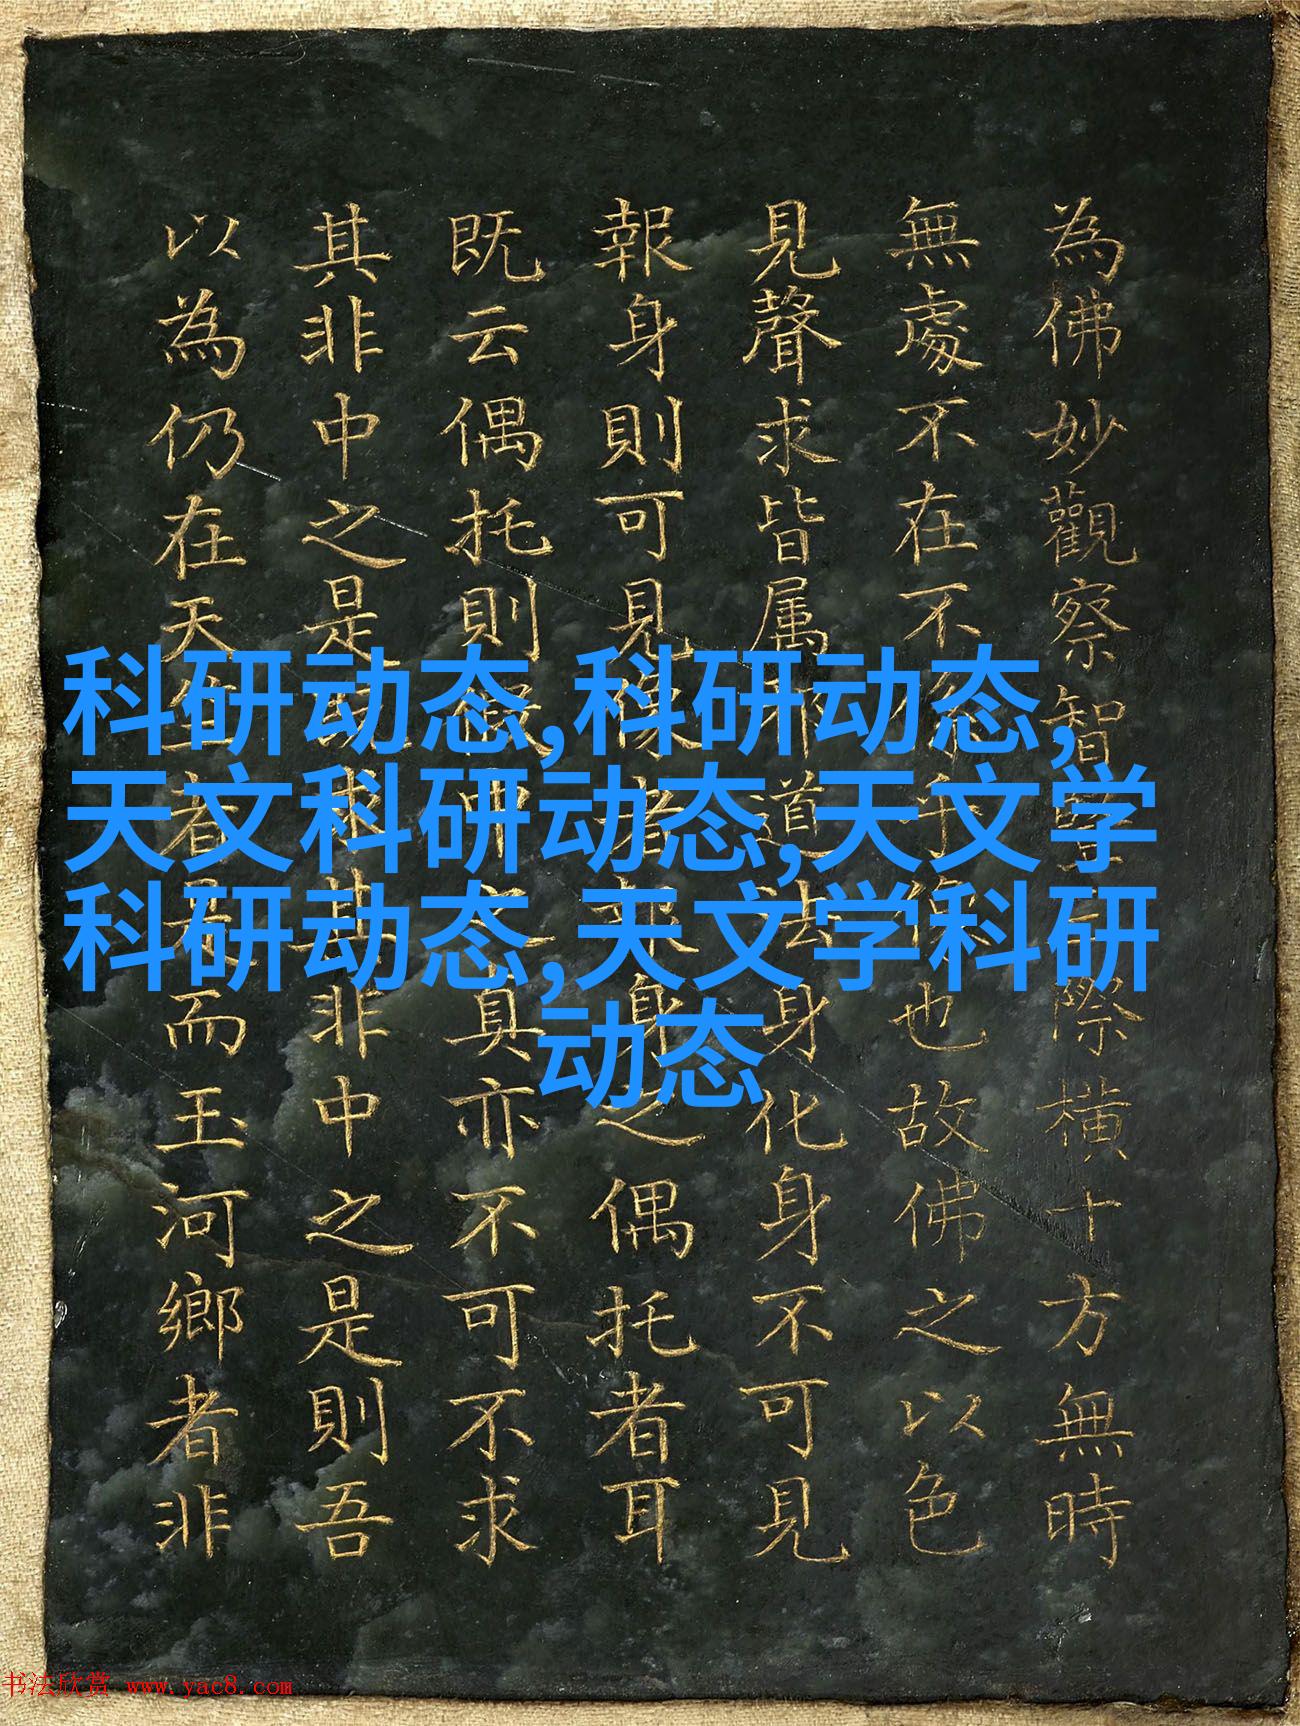 為佛妙觀察智際橫十方無時
無處不在不乎像也故佛之以色
見聲求皆属邪道法身化身不可見
報身則可見像者報身之偶托者耳
既云偶托則假中之真亦不可不求
其非中之是求其非中之是則吾
以為仍在天竺者是而玉河鄉者非
科研动态,科研动态,
天文科研动态,天文学
科研动态,天文学科研
动态
书法欣赏 www.yac8.com